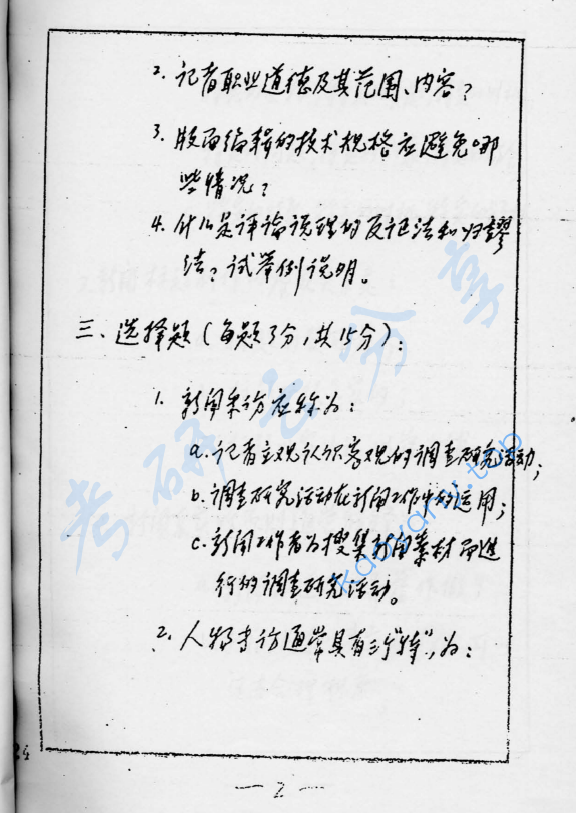 2. 记者职业道德及其范围、内容？
3. 版面编辑的技术规格应避免哪
些情况？
4. 什么是评论说理的反证法和归谬
法？试举例说明。
三、选择题（每题3分，共15分）：
1. 新闻采访应称为：
a. 记者主观认识客观的调查研究活动；
b. 调查研究活动在新闻工作中的运用；
c. 新闻工作者为搜集新闻素材而进
行的调查研究活动。
2. 人物专访通常具有三个“特”，为：
— 2 —
考研云分享
kaoyany.top